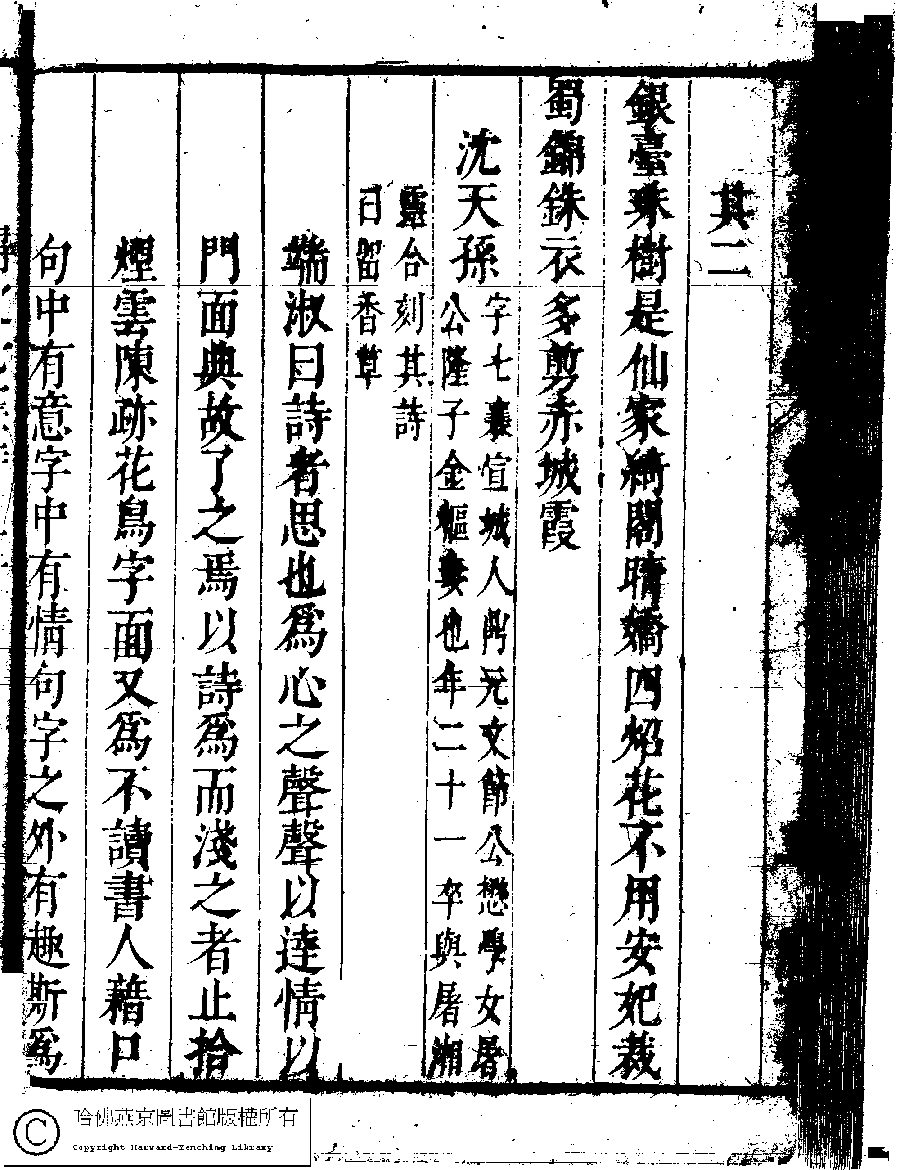 其二
銀臺珠樹是仙家綺閣晴嬌四照花不用安妃裁
蜀錦銖衣多剪赤城霞
沈天孫
字七襄宣城人門元文節公懋學女屠
公隆子金樞妻也年二十一卒與屠湘
靈合刻其詩
曰留香草
端淑曰詩者思也為心之聲聲以達情以
門面典故了之焉以詩為而淺之者止拾
煙雲陳跡花鳥字面又為不讀書人藉口
句中有意字中有情句字之外有趣斯為
哈佛燕京圖書館版權所有
Copyright Harvard-Yenching Library